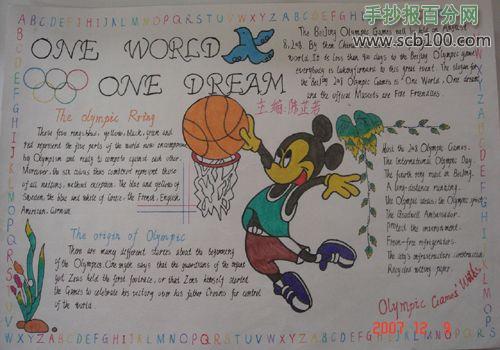 手抄报百分网
www.scb100.com
ABCDEFGHIJKLMNOPQRSTUVWXYZ
ONE WORLD
ONE DREAM
The Beijing Olympic Games will be held on August
8, 2008. By then
world. It is less than days to the Beijing Olympic games
everybody is looking forward to this great event. The slogan for
the Beijing 2008 Olympic Games is "One World, One dream
and the official Mascots are Five Friendlies.
主编:
The Olympic Rring
These five rings blue, yellow, black, green and
red represent the five parts of the world now encompassed
by Olympism and ready to compete against each other.
Moreover, the six colors thus combined represent those
of all nations, without exception. The blue and yellow of
Sweden, the blue and white of Greece, the French, English,
American, German
The origin of Olympic
There are many different stories about the beginning
of the Olympics. One myth says that the guardians of the infant
god Zeus held the first footrace, or that Zeus himself started
the Games to celebrate his victory over his father Cronus for control
of the world.
Host the 2008 Olympic Games.
The International Olympic Day.
The fourth ring road in Beijing.
A long-distance running.
The Olympic ideals; the Olympic spirit
The Goodwill Ambassador.
Protect the environment.
Freon-free refrigerators.
The city's infrastructure construction
Recycled writing paper.
Olympic Games' Words
2007.12.9